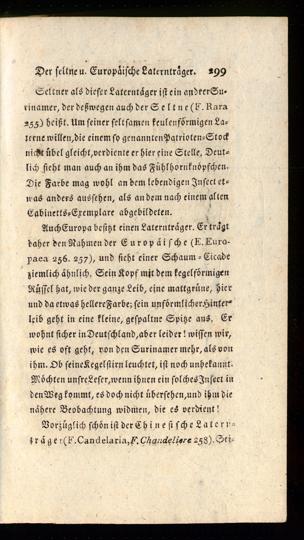 Der seltne u. Europäische Laternträger. 299
Seltner als dieser Laternträger ist ein andrer Su-
rinamer, der deßwegen auch der Seltne (F. Rara
255) heißt. Um seiner seltsamen keulenförmigen La-
terne willen, die einem so genannten Patrioten-Stock
nicht übel gleicht, verdiente er hier eine Stelle, Deut-
lich sieht man auch an ihm das Fühlhornknöpfchen.
Die Farbe mag wohl an dem lebendigen Insect et-
was anders aussehen, als an dem nach einem alten
Cabinetts-Exemplare abgebildeten.
Auch Europa besitzt einen Laternträger. Er trägt
daher den Nahmen der Europäische (E. Euro-
paea 256. 257), und sieht einer Schaum-Cicade
ziemlich ähnlich. Sein Kopf mit dem kegelförmigen
Rüssel hat, wie der ganze Leib, eine mattgrüne, hier
und da etwas hellere Farbe; sein unförmlicher Hinter-
leib geht in eine kleine, gespaltne Spitze aus. Er
wohnt sicher in Deutschland, aber leider! wissen wir,
wie es oft geht, von den Surinamer mehr, als von
ihm. Ob seine Kegelstirn leuchtet, ist noch unbekannt.
Möchten unsre Leser, wenn ihnen ein solches Insect in
den Weg kommt, es doch nicht übersehen, und ihm die
nähere Beobachtung widmen, die es verdient!
Vorzüglich schön ist der Chinesische Latern-
träger (F. Candelaria, F. Chandeliere 258). Sei-